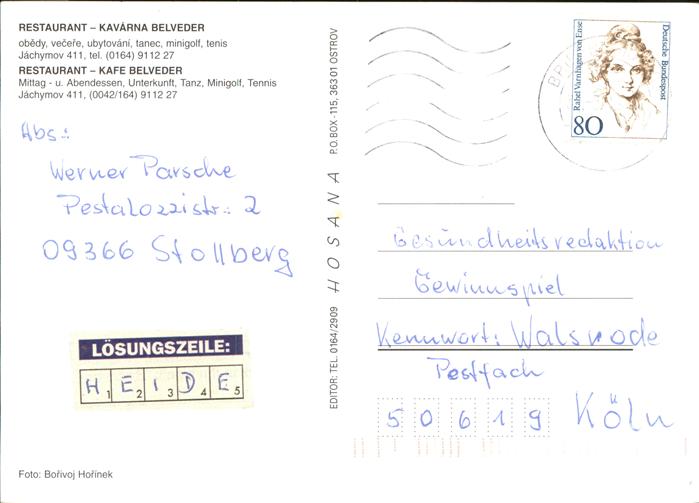 RESTAURANT – KAVÁRNA BELVEDER
obědy, večeře, ubytování, tanec, minigolf, tenis
Jáchymov 411, tel. (0164) 9112 27
RESTAURANT – KAFE BELVEDER
Mittag - u. Abendessen, Unterkunft, Tanz, Minigolf, Tennis
Jáchymov 411, (0042/164) 9112 27
Abs.:
Werner Parsche
Pestalozzistr.: 2
09366 Stollberg
LÖSUNGSZEILE:
H1 E2 I3 D4 E5
Foto: Bořivoj Hořínek
EDITOR: TEL. 0164/2909 HOSANA P.O. BOX -115, 363 01 OSTROV
Rahel Varnhagen von Ense
Deutsche Bundespost
80
Gesundheitsredaktion
Gewinnspiel
Kennwort: Walsrode
Postfach
50619 Köln